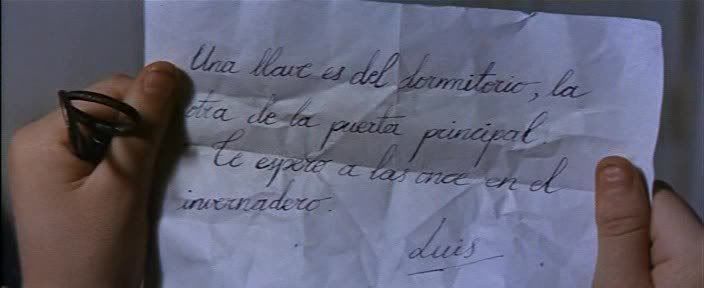 Una llave es del dormitorio, la
otra de la puerta principal.
Te espero a las once en el
invernadero.
Luis